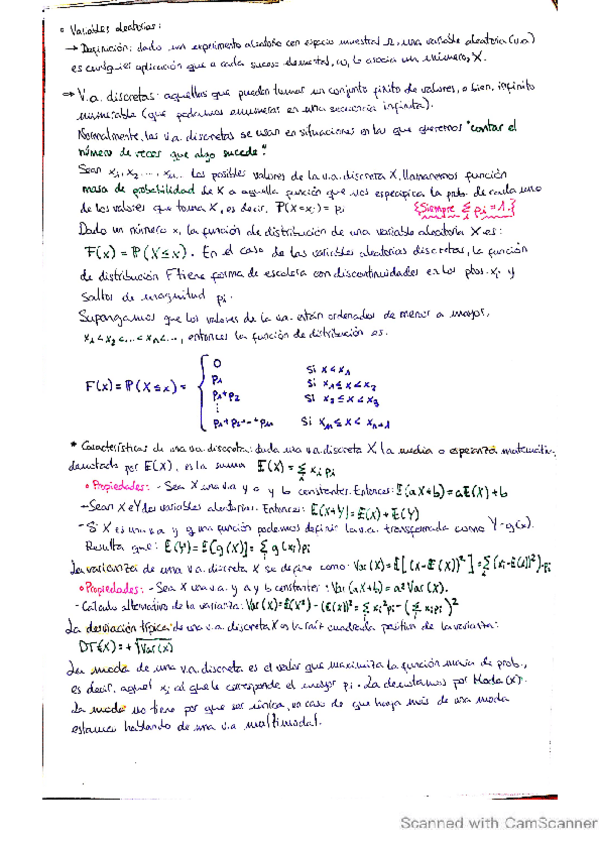 • Variables aleatorias:
→ Definición: dado un experimento aleatorio con espacio muestral Ω, una variable aleatoria (v.a)
es cualquier aplicación que a cada suceso elemental, ω, le asocia un número, X.
→ V.a. discretas: aquellas que pueden tomar un conjunto finito de valores, o bien, infinito
numerable (que podemos enumerar en una secuencia infinita).
Normalmente, las v.a. discretas se usan en situaciones en las que queremos "contar el
número de veces que algo sucede".
Sean x₁, x₂, ..., xₙ... los posibles valores de la v.a. discreta X, llamaremos función
masa de probabilidad de X a aquella función que nos especifica la prob. de cada uno
de los valores que toma X, es decir, P(X=xᵢ) = pᵢ {Siempre Σ pᵢ = 1.}
Dado un número x, la función de distribución de una variable aleatoria X es:
F(x) = P(X≤x). En el caso de las variables aleatorias discretas, la función
de distribución F tiene forma de escalera con discontinuidades en los ptos. xᵢ y
saltos de magnitud pᵢ.
Supongamos que los valores de la v.a. están ordenados de menor a mayor,
x₁<x₂<...<xₙ<..., entonces la función de distribución es:
F(x) = P(X≤x) = { 0 si x<x₁
p₁ si x₁≤x<x₂
p₁+p₂ si x₂≤x<x₃
⋮
p₁+p₂+...+pₙ si xₙ≤x<xₙ₊₁
* Características de una v.a. discreta: dada una v.a. discreta X, la media o esperanza matemática,
denotada por E(X), es la suma E(X) = Σ xᵢ pᵢ
• Propiedades: - Sea X una v.a y a y b constantes. Entonces: E(aX+b) = aE(X)+b
- Sean X e Y dos variables aleatorias. Entonces: E(X+Y) = E(X)+E(Y)
- Si X es una v.a y g una función podemos definir la v.a. transformada como Y=g(x).
Resulta que: E(Y) = E[g(X)] = Σ g(xᵢ)pᵢ
La varianza de una v.a. discreta X se define como: Var(X) = E[(X-E(X))²] = Σ (xᵢ-E(X))²·pᵢ
• Propiedades: - Sea X una v.a. y a y b constantes: Var(aX+b) = a² Var(X).
- Cálculo alternativo de la varianza: Var(X) = E(X²) - (E(X))² = Σ xᵢ² pᵢ - (Σ xᵢ pᵢ)²
La desviación típica de una v.a. discreta X es la raíz cuadrada positiva de la varianza:
DT(X) = +√Var(X)
La moda de una v.a. discreta es el valor que maximiza la función masa de prob.,
es decir, aquel xᵢ al que le corresponde el mayor pᵢ. La denotamos por Moda(X).
La moda no tiene por que ser única, en caso de que haya más de una moda
estamos hablando de una v.a multimodal.
Scanned with CamScanner